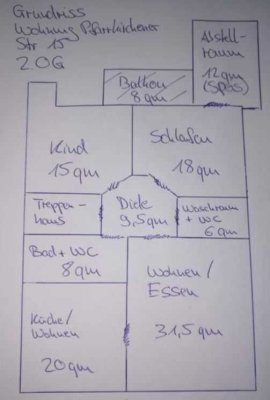 Grundriss
Wohnung Pfarrkirchener
Str 15
2 OG
Abstell-
raum
12 qm
(Spbö)
Balkon
8 qm
Kind
15 qm
Schlafen
18 qm
Treppen-
haus
Diele
9,5 qm
Waschraum
+ WC
6 qm
Bad + WC
8 qm
Wohnen /
Essen
31,5 qm
Küche/
Wohnen
20 qm